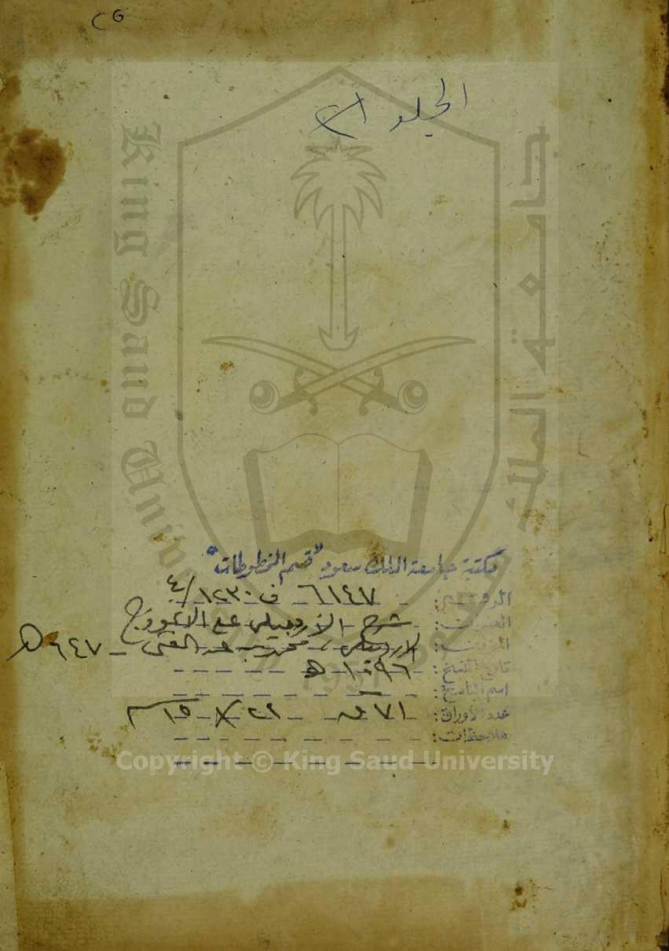 المجلد
King Saud University
جامعة الملك سعود
مكتبة جامعة الملك سعود "قسم المخطوطات"
الرقم: ٦١٤٧ ف ١٢٣٠/٤
العنوان: شرح الأردبيلي على الانموذج
المؤلف: الاردبيلي، محمد بن عبد الغني - ٦٤٧ هـ
تاريخ النسخ: ١٠٩٦ هـ
اسم الناسخ:
عدد الأوراق: ٧١ ق ٢١ × ١٥ سم
ملاحظات:
Copyright © King Saud University